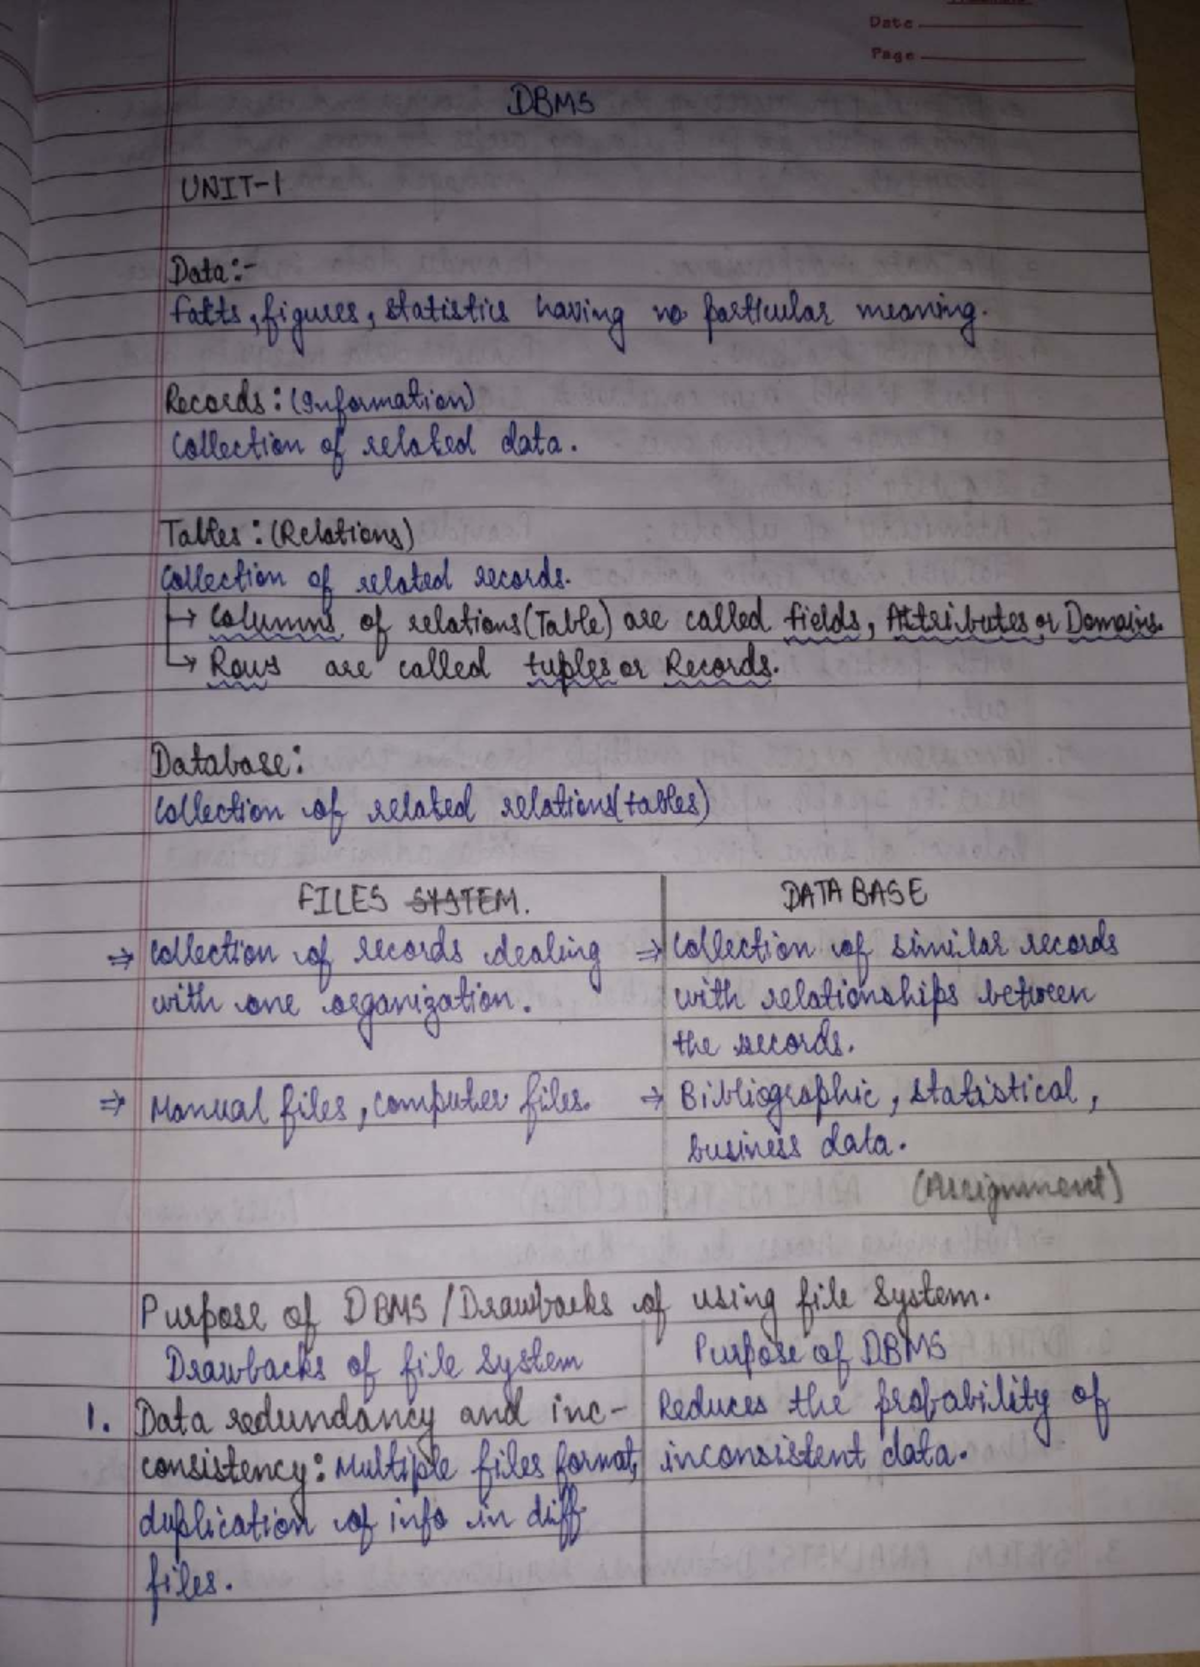 Date
Page
DBMS
UNIT-1
Data:-
facts, figures, statistics having no particular meaning.
Records: (Information)
Collection of related data.
Tables: (Relations)
Collection of related records.
→ Columns of relations(Table) are called fields, Attributes or Domains.
→ Rows are called tuples or Records.
Database:
Collection of related relations(tables)
FILES SYSTEM. DATABASE
⇒ Collection of records dealing ⇒ Collection of similar records
with one organization. with relationships between
the records.
⇒ Manual files, computer files. ⇒ Bibliographic, statistical,
business data.
(Assignment)
Purpose of DBMS / Drawbacks of using file system.
Drawbacks of file system Purpose of DBMS
1. Data redundancy and inc- Reduces the probability of
consistency: Multiple files format, inconsistent data.
duplication of info in diff
files.